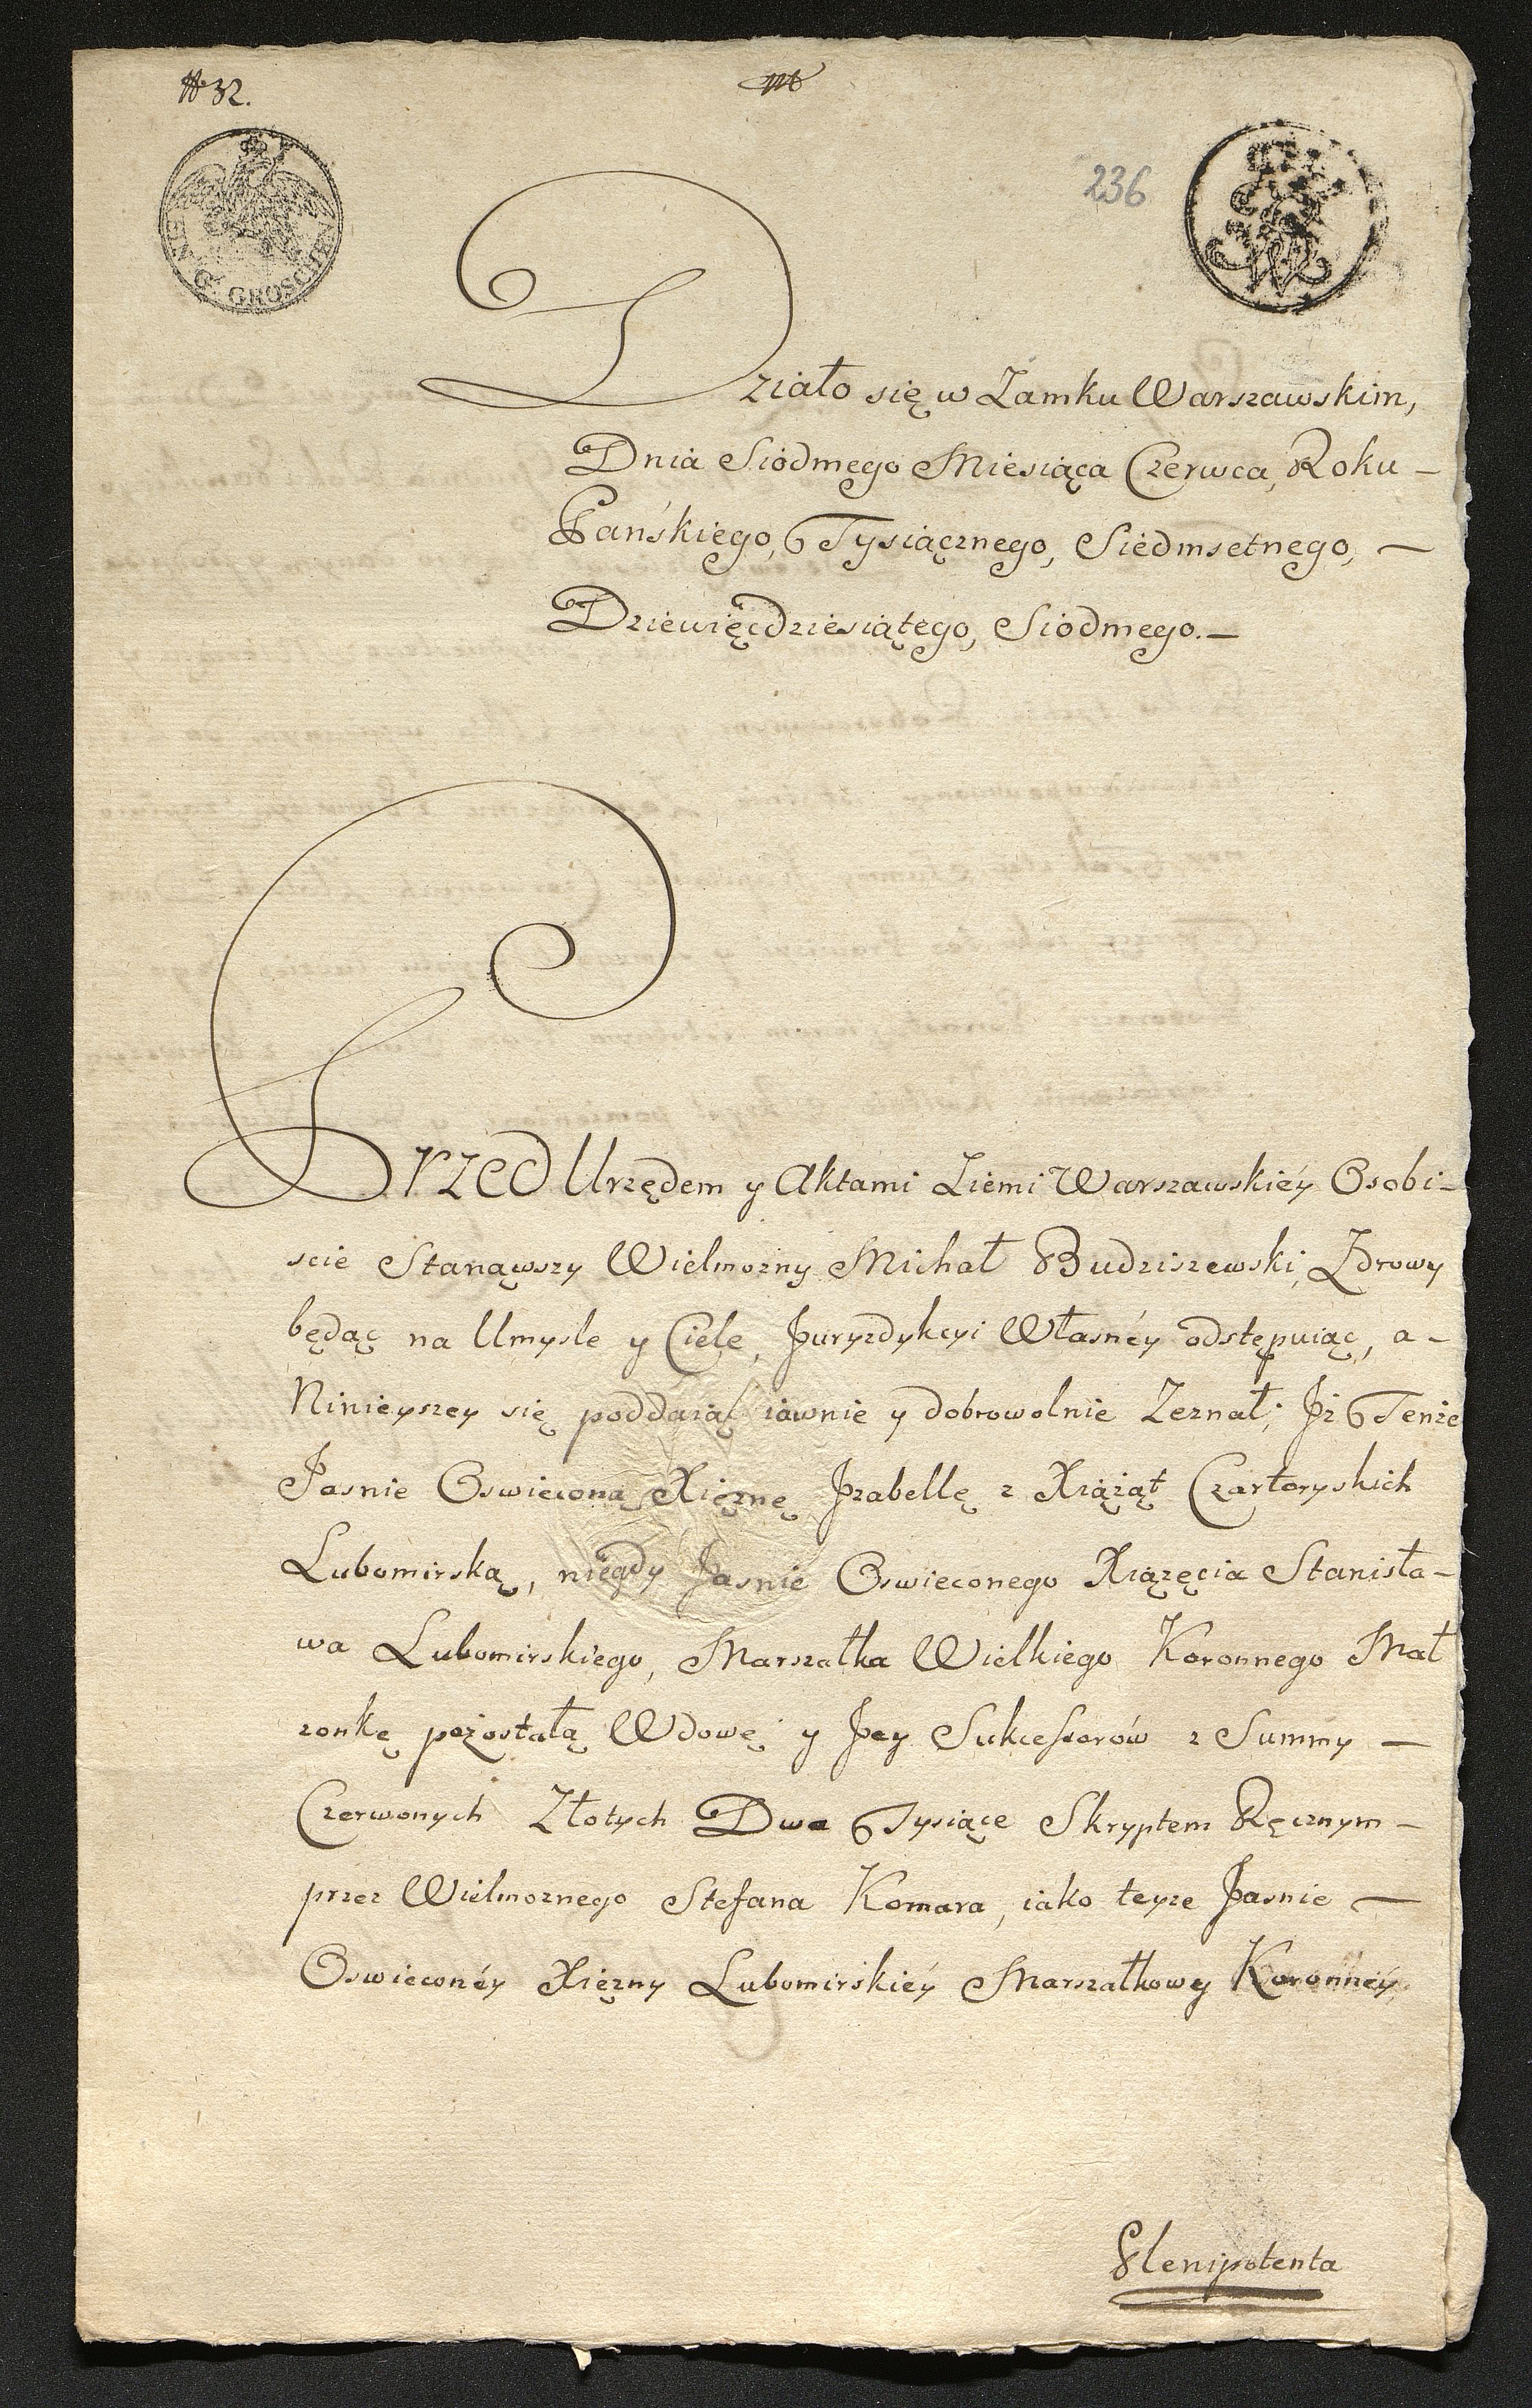 # 32.
236
GROSCHEN
Działo się w Zamku Warszawskim,
Dnia Siodmego Miesiąca Czerwca, Roku —
Pańskiego, Tysiącznego, Siedmsetnego, —
Dziewięćdziesiątego, Siodmego. —
Przed Urzędem y Aktami Ziemi Warszawskiéy Osobi-
scie Stanąwszy Wielmozny Michał Budziszewski, Zdrowy
będąc na Umysle y Ciele, Juryzdykcyi Własnéy odstępuiąc, a-
Ninieyszey się poddaiąc iawnie y dobrowolnie Zeznał; Jż Tenże
Jasnie Oswieconą Xięznę Jzabellę z Xiążąt Czartoryskich
Lubomirską, niegdy Jasnie Oswieconego Xiązęcia Stanisła-
wa Lubomirskiego, Marszałka Wielkiego Koronnego Mał
zonkę pozostałą Wdowę y Jey Sukcessorów z Summy —
Czerwonych Złotych Dwa Tysiące Skryptem Ręcznym -
przez Wielmoznego Stefana Komara, iako teyze Jasnie —
Oswieconéy Xięzny Lubomirskiéy Marszałkowy Koronnéy
Plenipotenta